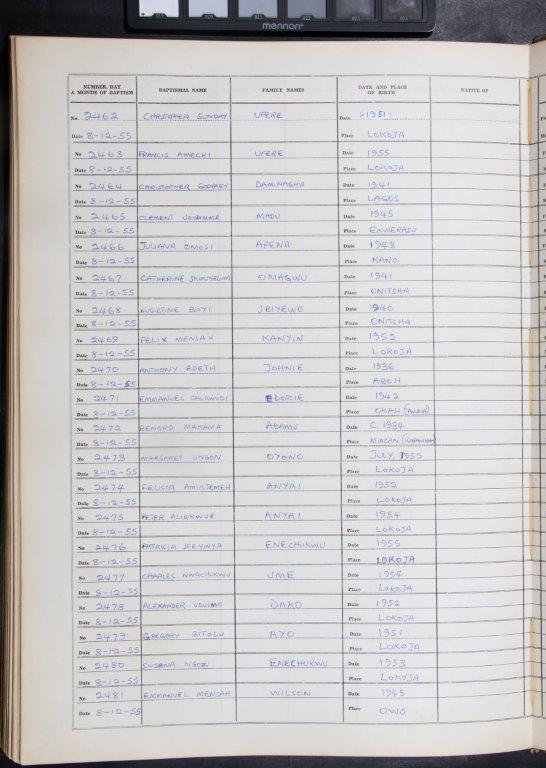 mennon
NUMBER, DAY & MONTH OF BAPTISM BAPTISMAL NAME FAMILY NAMES DATE AND PLACE OF BIRTH NATIVE OF
No 2462 CHRISTOPHER SUNDAY UFERE Date 1951
Date 8-12-55 Place LOKOJA
No 2463 FRANCIS AMECHI UFERE Date 1955
Date 8-12-55 Place LOKOJA
No 2464 CHRISTOPHER GODFREY DAMINAGHA Date 1941
Date 8-12-55 Place LAGOS
No 2465 CLEMENT MADU Date 1945
Date 8-12-55 Place EKWERASU
No 2466 JULIANA OMOSI APENA Date 1943
Date 8-12-55 Place KANO
No 2467 CATHERINE OMAGWU Date 1941
Date 8-12-55 Place ONITSHA
No 2468 AUGUSTINE BOYI JBIYEWO Date 1940
Date 8-12-55 Place ONITSHA
No 2469 FELIX MENSAH KANYIN Date 1952
Date 8-12-55 Place LOKOJA
No 2470 ANTHONY EDETH JOHNIE Date 1936
Date 8-12-55 Place ABOH
No 2471 EMMANUEL CHUKWUDI EDOZIE Date 1942
Date 8-12-55 Place OKAH (AWKA)
No 2472 BENARD MAKAMA ADAMU Date C. 1934
Date 8-12-55 Place
No 2473 MARGARET UNGON OYONO Date JULY, 1955
Date 8-12-55 Place LOKOJA
No 2474 FELICIA AMIKJEMEH ANYAI Date 1952
Date 8-12-55 Place LOKOJA
No 2475 PETER ALIAKWUE ANYAI Date 1954
Date 8-12-55 Place LOKOJA
No 2476 PATRICIA JFEYINYA ENECHUKWU Date 1955
Date 8-12-55 Place LOKOJA
No 2477 CHARLES NWACHUKWU UME Date 1954
Date 8-12-55 Place LOKOJA
No 2478 ALEXANDER UDUIMO DAKO Date 1952
Date 8-12-55 Place LOKOJA
No 2479 GREGORY BITOLU AYO Date 1951
Date 8-12-55 Place LOKOJA
No 2480 SUSANA NGOZI ENECHUKWU Date 1953
Date 8-12-55 Place LOKOJA
No 2481 EMMANUEL MENSAH WILSON Date 1945
Date 8-12-55 Place OWO